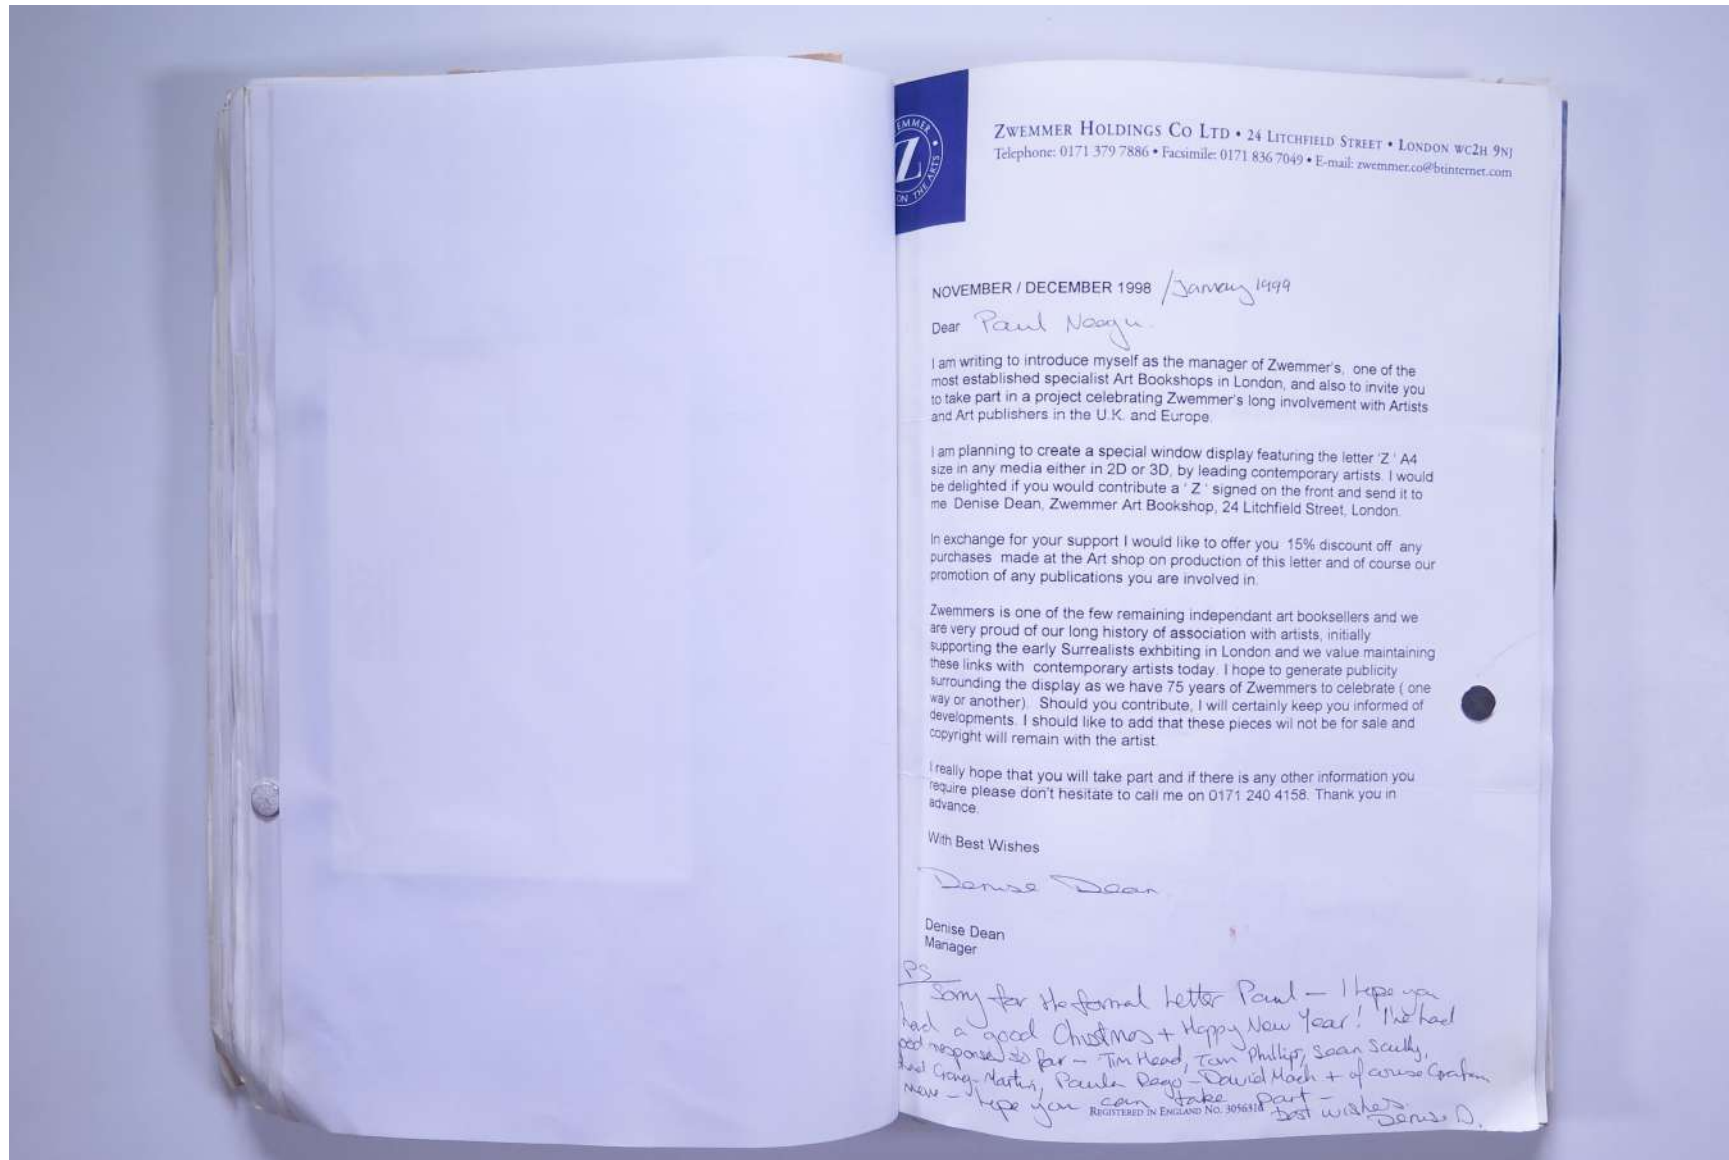 EMMER
Z
ON THE ARTS
ZWEMMER HOLDINGS CO LTD • 24 LITCHFIELD STREET • LONDON WC2H 9NJ
Telephone: 0171 379 7886 • Facsimile: 0171 836 7049 • E-mail: zwemmer.co@btinternet.com
NOVEMBER / DECEMBER 1998 / January 1999
Dear Paul Neagu
I am writing to introduce myself as the manager of Zwemmer's, one of the
most established specialist Art Bookshops in London, and also to invite you
to take part in a project celebrating Zwemmer's long involvement with Artists
and Art publishers in the U.K. and Europe.
I am planning to create a special window display featuring the letter 'Z ' A4
size in any media either in 2D or 3D, by leading contemporary artists. I would
be delighted if you would contribute a ' Z ' signed on the front and send it to
me Denise Dean, Zwemmer Art Bookshop, 24 Litchfield Street, London.
In exchange for your support I would like to offer you 15% discount off any
purchases made at the Art shop on production of this letter and of course our
promotion of any publications you are involved in.
Zwemmers is one of the few remaining independant art booksellers and we
are very proud of our long history of association with artists, initially
supporting the early Surrealists exhbiting in London and we value maintaining
these links with contemporary artists today. I hope to generate publicity
surrounding the display as we have 75 years of Zwemmers to celebrate ( one
way or another). Should you contribute, I will certainly keep you informed of
developments. I should like to add that these pieces wil not be for sale and
copyright will remain with the artist.
I really hope that you will take part and if there is any other information you
require please don't hesitate to call me on 0171 240 4158. Thank you in
advance.
With Best Wishes
Denise Dean
Denise Dean
Manager
PS
Sorry for the formal letter Paul – I hope you
had a good Christmas + Happy New Year! I've had
good response so far – Tim Head, Tom Phillips, Sean Scully,
Craig-Martin, Paula Rego – David Mach + of course Graham
– hope you can take part –
REGISTERED IN ENGLAND NO. best wishes
Denise D.